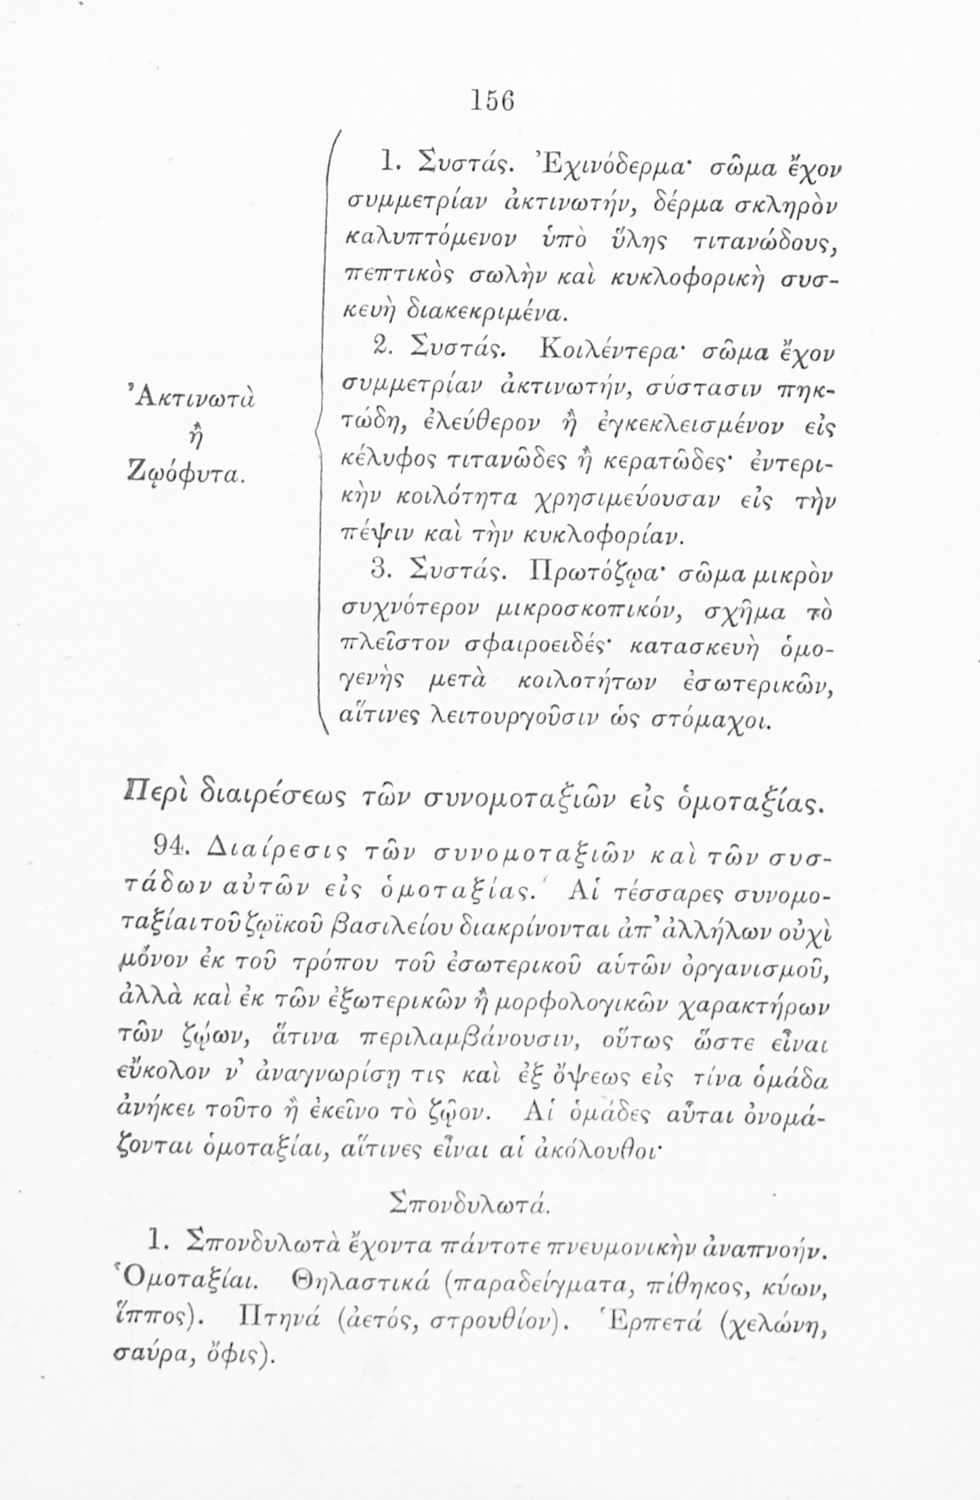 156
1. Συστάς. Ἐχινόδερμα· σῶμα ἔχον
συμμετρίαν ἀκτινωτήν, δέρμα σκληρὸν
καλυπτόμενον ὑπὸ ὕλης τιτανώδους,
πεπτικὸς σωλὴν καὶ κυκλοφορικὴ συσ-
κευὴ διακεκριμένα.
2. Συστάς. Κοιλέντερα· σῶμα ἔχον
συμμετρίαν ἀκτινωτήν, σύστασιν πηκ-
τώδη, ἐλεύθερον ἢ ἐγκεκλεισμένον εἰς
κέλυφος τιτανῶδες ἢ κερατῶδες· ἐντερι-
κὴν κοιλότητα χρησιμεύουσαν εἰς τὴν
πέψιν καὶ τὴν κυκλοφορίαν.
3. Συστάς. Πρωτόζῳα· σῶμα μικρὸν
συχνότερον μικροσκοπικόν, σχῆμα τὸ
πλεῖστον σφαιροειδές· κατασκευὴ ὁμο-
γενὴς μετὰ κοιλοτήτων ἐσωτερικῶν,
αἵτινες λειτουργοῦσιν ὡς στόμαχοι.
Ἀκτινωτὰ
ἢ
Ζῳόφυτα.
Περὶ διαιρέσεως τῶν συνομοταξιῶν εἰς ὁμοταξίας.
94. Διαίρεσις τῶν συνομοταξιῶν καὶ τῶν συσ-
τάδων αὐτῶν εἰς ὁμοταξίας. Αἱ τέσσαρες συνομο-
ταξίαι τοῦ ζῳϊκοῦ βασιλείου διακρίνονται ἀπ' ἀλλήλων οὐχὶ
μόνον ἐκ τοῦ τρόπου τοῦ ἐσωτερικοῦ αὐτῶν ὀργανισμοῦ,
ἀλλὰ καὶ ἐκ τῶν ἐξωτερικῶν ἢ μορφολογικῶν χαρακτήρων
τῶν ζῴων, ἅτινα περιλαμβάνουσιν, οὕτως ὥστε εἶναι
εὔκολον ν' ἀναγνωρίσῃ τις καὶ ἐξ ὄψεως εἰς τίνα ὁμάδα
ἀνήκει τοῦτο ἢ ἐκεῖνο τὸ ζῷον. Αἱ ὁμάδες αὗται ὀνομά-
ζονται ὁμοταξίαι, αἵτινες εἶναι αἱ ἀκόλουθοι·
Σπονδυλωτά.
1. Σπονδυλωτὰ ἔχοντα πάντοτε πνευμονικὴν ἀναπνοήν.
Ὁμοταξίαι. Θηλαστικά (παραδείγματα, πίθηκος, κύων,
ἵππος). Πτηνά (ἀετός, στρουθίον). Ἑρπετά (χελώνη,
σαύρα, ὄφις).